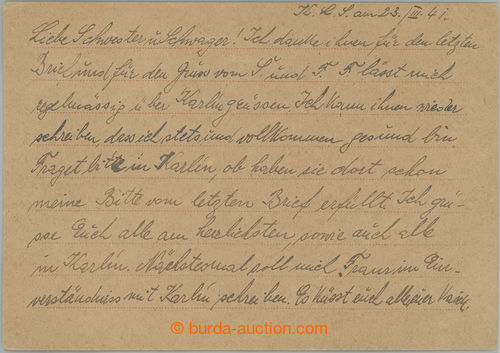 K. L. S. am 23./III. 41.
Liebe Schwester, u Schwager! Ich danke ihnen für den letzten
Brief, und für den Gruss vom S. und F. F. lässt mich
regelmässig über Karlin grüssen. Ich kann ihnen wieder
schreiben, dass ich stets und vollkommen gesund bin.
Fraget bitte in Karlin, ob haben sie dort schon
meine Bitte vom letzten Brief erfüllt. Ich grü-
sse Euch alle am herzlichsten, sowie auch alle
in Karlín. Nächstesmal soll mich Franz im Ein-
verständniss mit Karlín schreiben. Es küsst euch alle, euer
© burda-auction.com